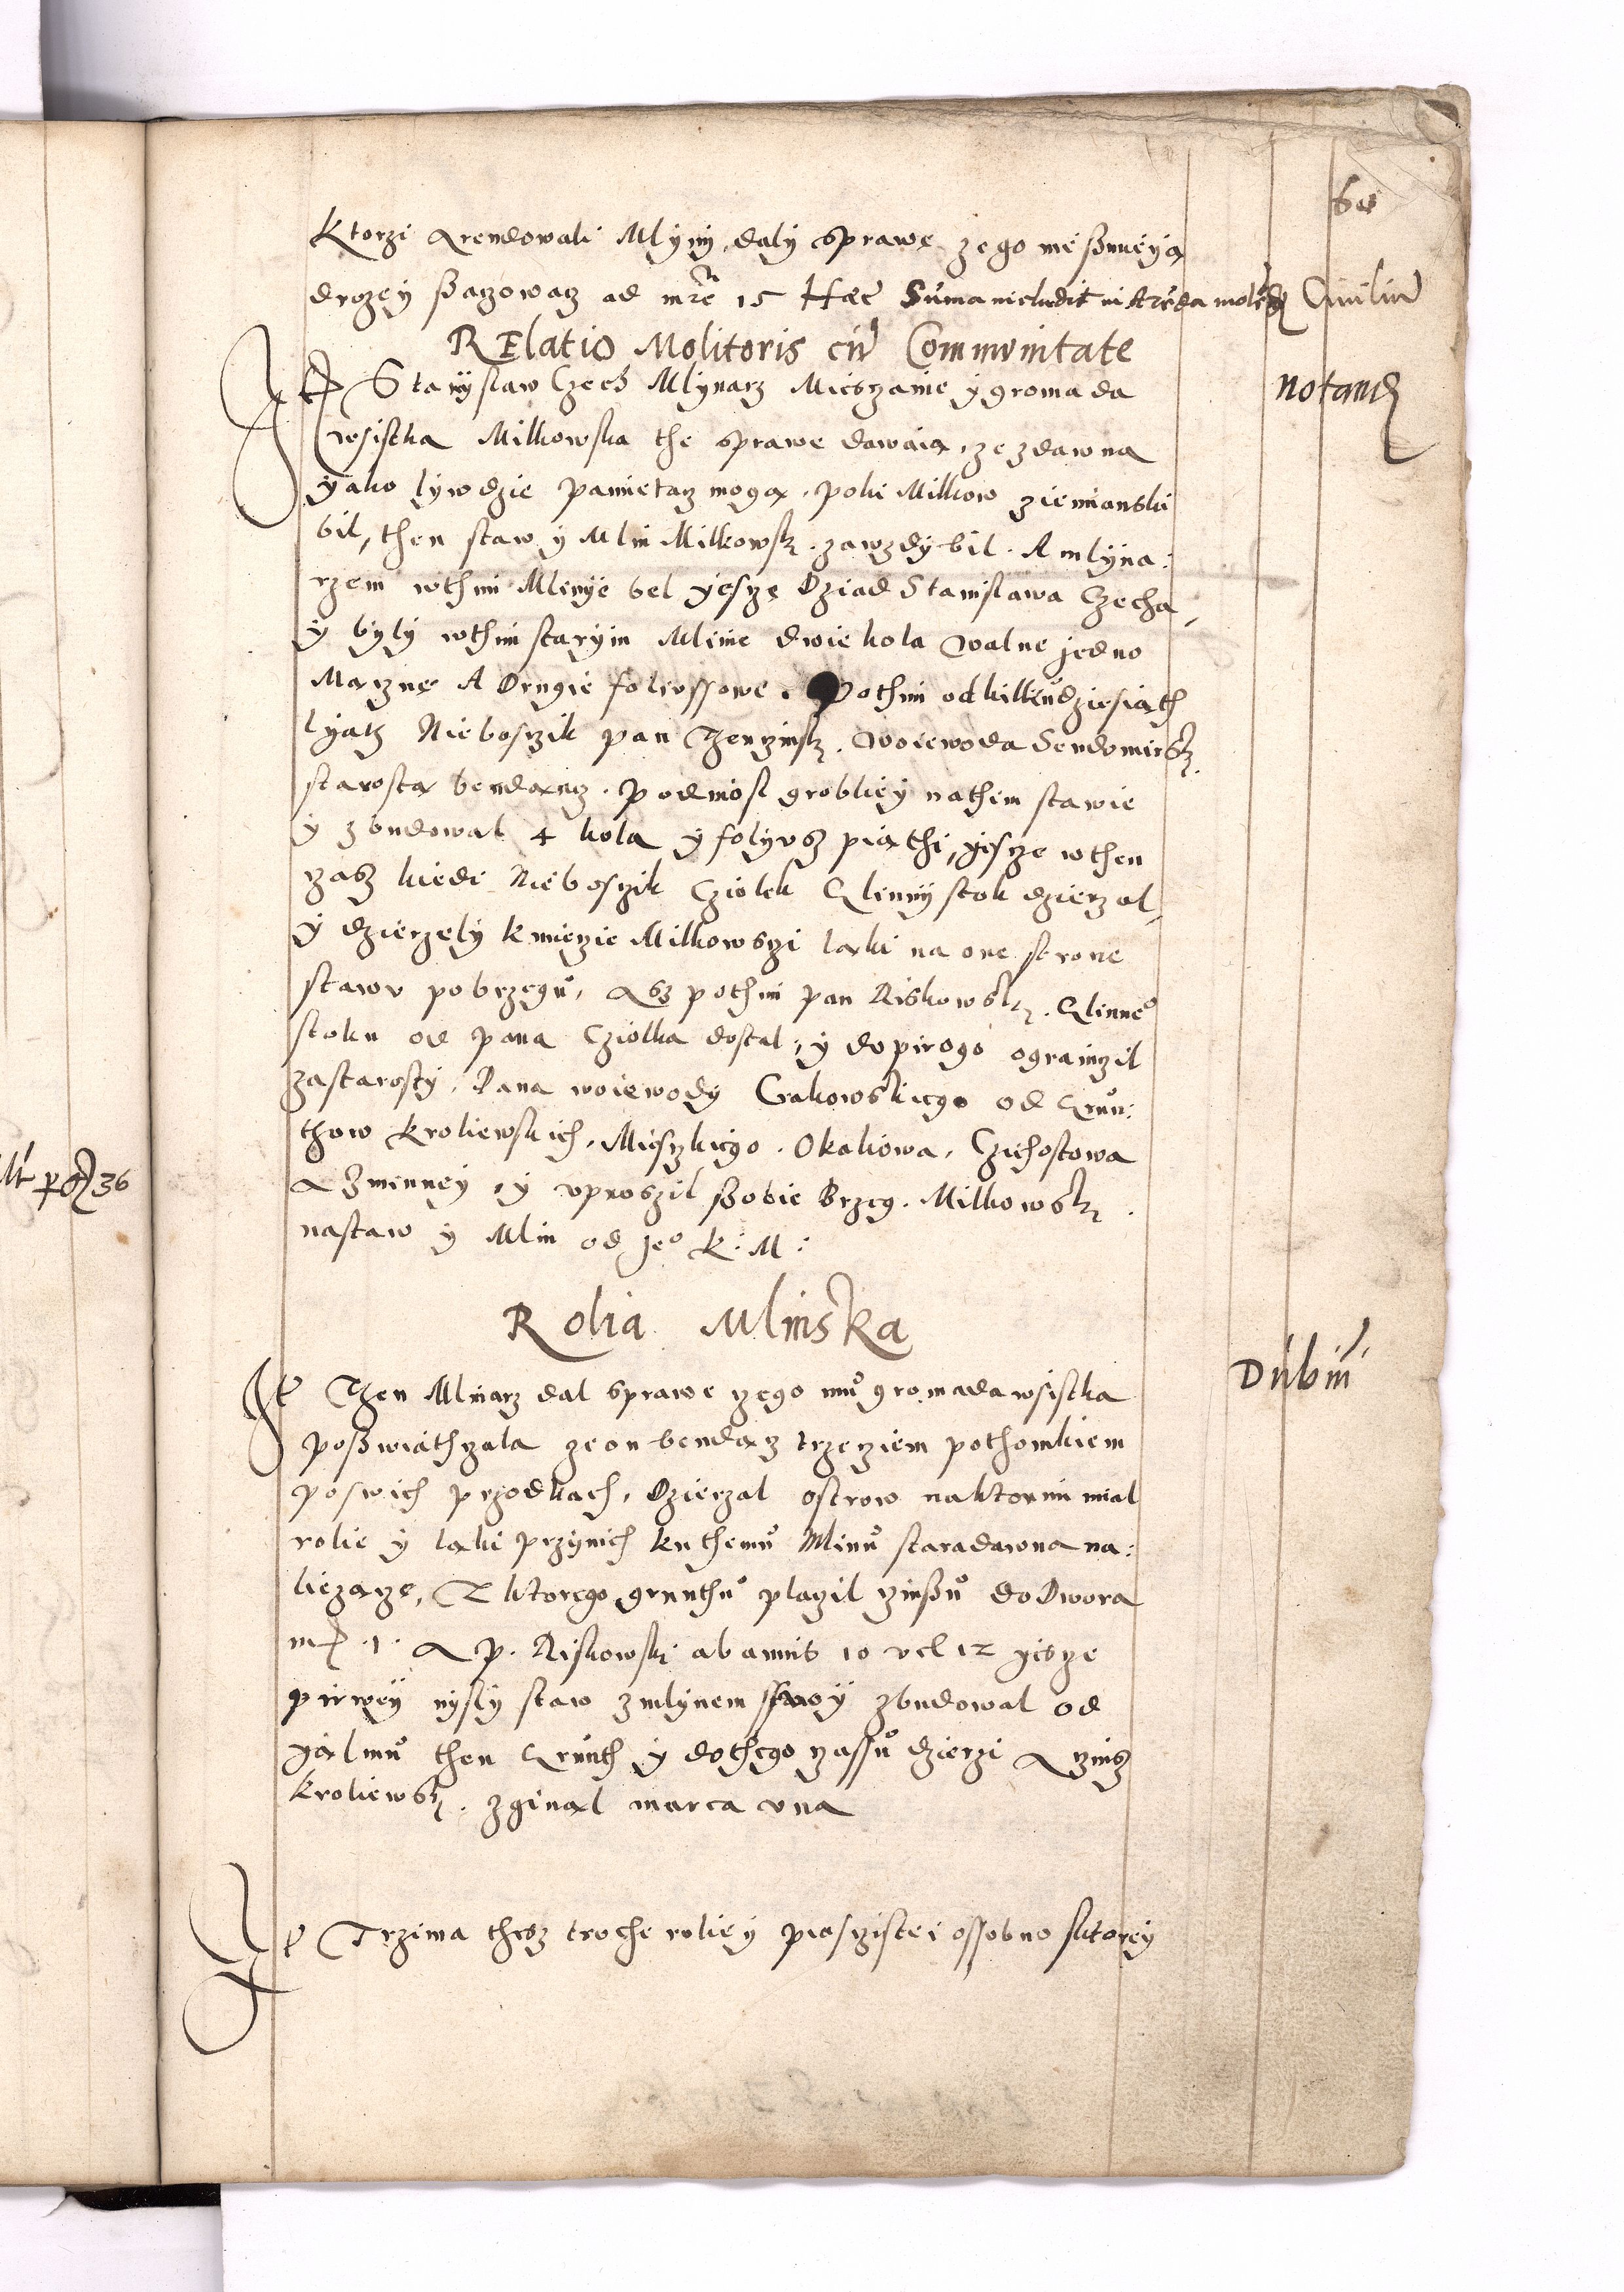 Ktorzi Arendowali Mlyny, daly sprawę zego nie ßmieyą
drozey ßaczowacz ad mrc 15 Haec Suma includit in Areda molēd Civiliu
RElatio Molitoris cū Communitate
It Stanyslaw Czech Mlynarz Miesczanie y gromada
notand
wsistka Milkowska the sprawe dawaią, ze zdawna
yako lywdzie pamietacz mogą, poki Milkow ziemianski
bil, then staw y Mlin Milkowsk. zawzdy bil. A mlyna:
rzem wthim Mlinye bel yescze Dziad Stanislawa Czecha,
y byly wthim starym Mlinie dwie kola walne jedno
Maczne A Drugie folvssowe. Pothim od kilkudziesiąth
lyatz Nieboszik pan Thenczinsk. Woiewoda Sendomirsk.
starosta bendancz. podniosl grobliey nathim stawie
y zbudowal 4 kola y folyvsz piąthi, yescze wthen
czasz kiedi Nieboszik Cziolek Glinny stok dzierzal,
y dzierzely kmieczie Milkowsczi laki na one strone
stawv pobrzegu, Asz pothim pan Riskowsk. Glinneo
stoku od pana Cziolka dostal, y dopirogo ograniczil
zastarosty, Pana woiewody Crakowskiego od Grun:
thow kroliewskich, Miesczkiego. Okaliowa, Czichostowa
A Zminney, y vprosził ßobie Brzeg. Milkowsk.
nastaw y Mlin od Jeo K: M:
Rolia Mlinska
It Then Mlinarz dal sprawe czego mu gromada wsistka
Dubiu
poßwiathczala ze on bendacz trzeciem pothomkiem
poswich przodkach, Dzierzal ostrow naktorim mial
rolie y laki przynich kuthemu Mlinu staradawna na:
liezącze, Z ktorego grunthu placzil czinßu do Dwora
mr. 1. A p. Riskowski ab annis 10 vel 12 yescze
pirwey nysly staw zmlynem swoy zbudowal od
yąl mu then Grunth y dothego czassu dzierzi A czinsz
kroliewsk. zginąl marca vna
It Trzima thesz troche roliey piascistei ossobno sktorey
Mt pg 36